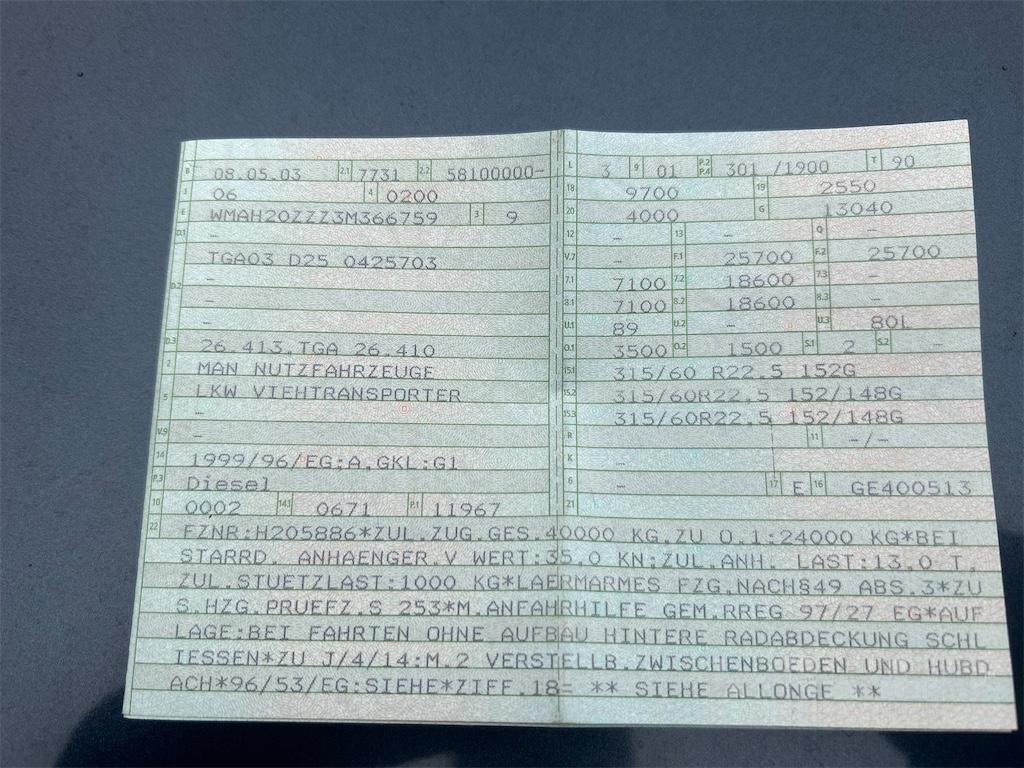 B 08.05.03 2.1 7731 2.2 58100000-
J 06 4 0200
E WMAH20ZZZ3M366759 3 9
D.1 –
TGA03 D25 0425703
D.2 –
–
–
D.3 26.413,TGA 26.410
2 MAN NUTZFAHRZEUGE
5 LKW VIEHTRANSPORTER
–
V.9 –
14 1999/96/EG:A,GKL:G1
P.3 Diesel
10 0002 14.1 0671 P.1 11967
L 3 9 01 P.2 P.4 301 /1900 T 90
18 9700 19 2550
20 4000 G 13040
12 – 13 – Q –
V.7 – F.1 25700 F.2 25700
7.1 7100 7.2 18600 7.3 –
8.1 7100 8.2 18600 8.3 –
U.1 89 U.2 – U.3 80L
O.1 3500 O.2 1500 S.1 2 S.2 –
15.1 315/60 R22.5 152G
15.2 315/60R22.5 152/148G
15.3 315/60R22.5 152/148G
R 11 –/–
K –
6 – 17 E 16 GE400513
21
22 FZNR:H205886*ZUL.ZUG.GES.40000 KG.ZU O.1:24000 KG*BEI
STARRD. ANHAENGER.V WERT:35.0 KN;ZUL.ANH. LAST:13.0 T,
ZUL.STUETZLAST:1000 KG*LAERMARMES FZG.NACH§49 ABS.3*ZU
S.HZG.PRUEFZ.S 253*M.ANFAHRHILFE GEM.RREG 97/27 EG*AUF
LAGE:BEI FAHRTEN OHNE AUFBAU HINTERE RADABDECKUNG SCHL
IESSEN*ZU J/4/14:M.2 VERSTELLB.ZWISCHENBOEDEN UND HUBD
ACH*96/53/EG:SIEHE*ZIFF.18= ** SIEHE ALLONGE **